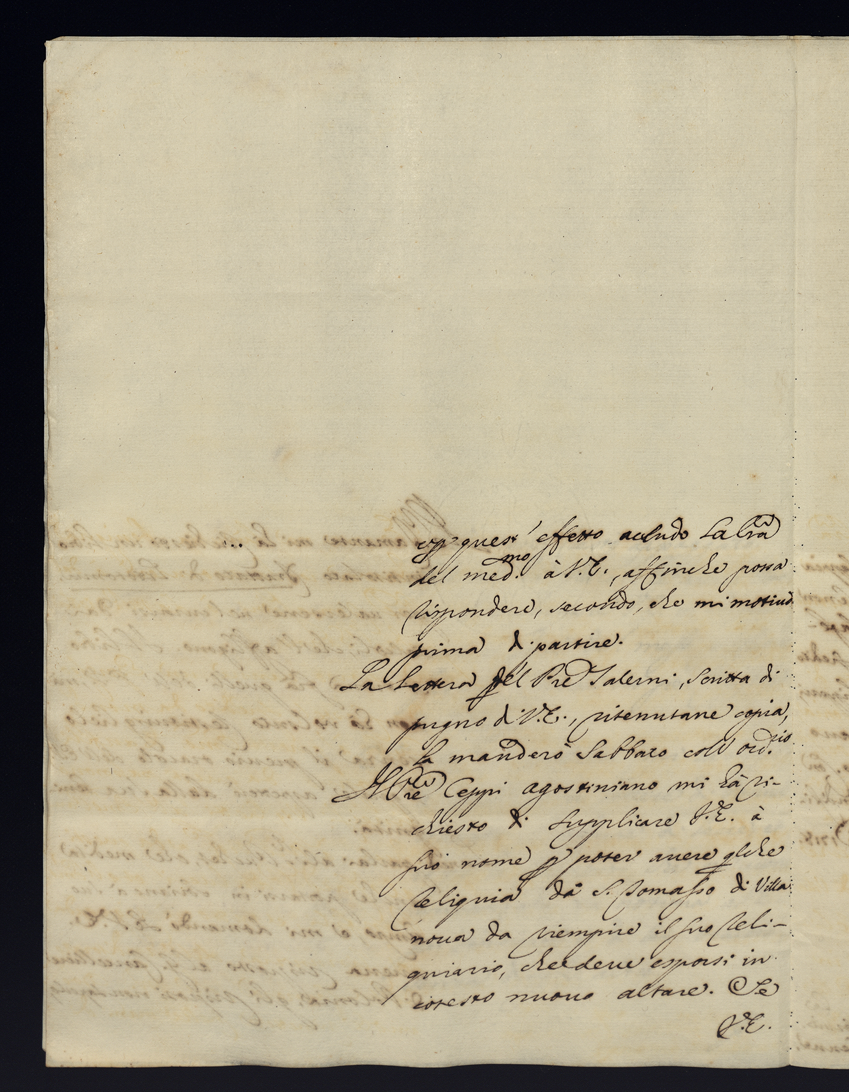 quest' effetto accludo La Lrã
del med.mo à V.E., affinche possa
rispondere, secondo, che mi motivò
prima di partire.
La Lettera del Prẽ Salerni, scritta di
pugno di V.E., ritenutane copia,
la manderò Sabbato coll' ord.rio
Il Prẽ Ceppi Agostiniano mi hà ri-
chiesto di supplicare V.E. à
suo nome p poter avere qlche
reliquia di S. Tomasso di Villa
nova da riempire il suo reli-
quiario, che deve esporsi in
cotesto nuovo altare. Se
V.E.